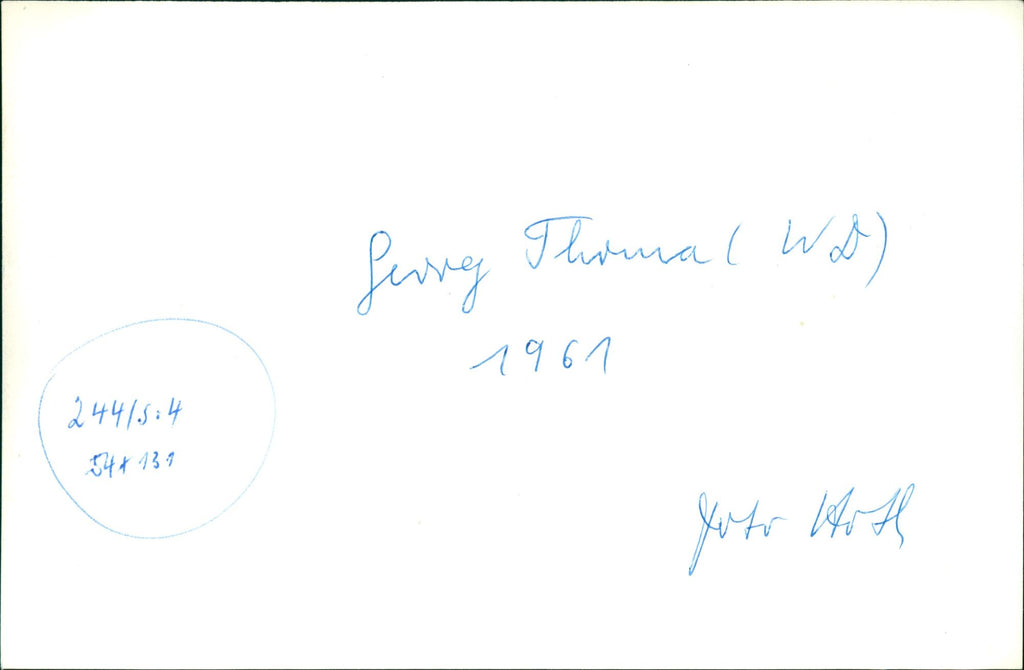 Georg Thoma ( WD)
1961
244/S:4
54 x 131
Foto